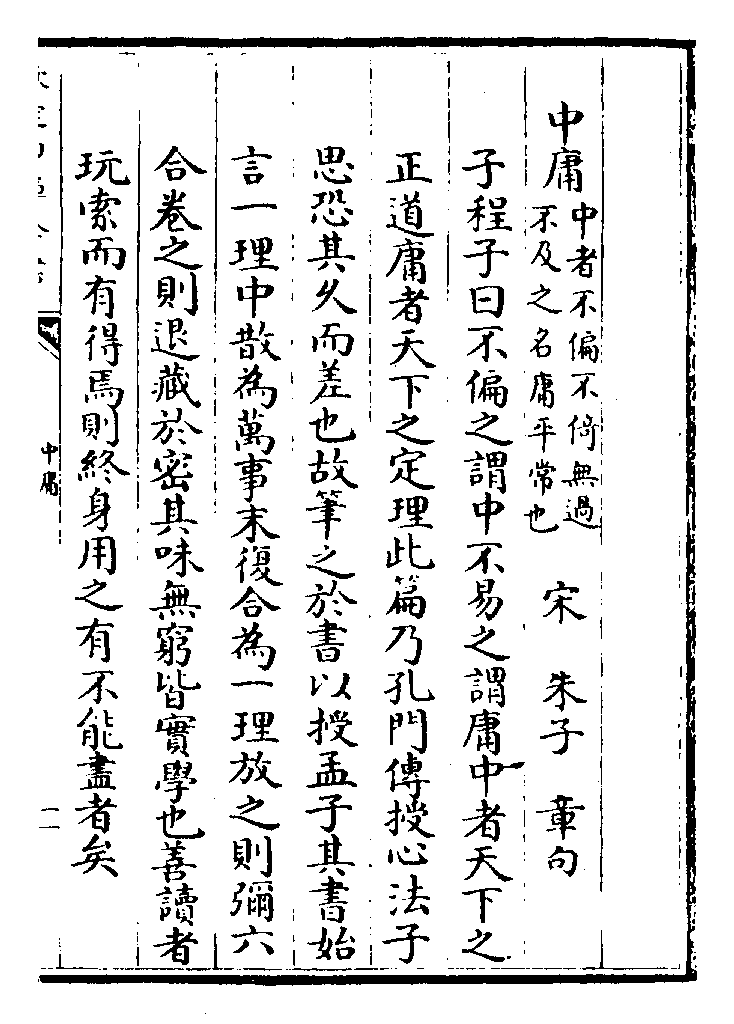 中庸中者不偏不倚無過不及之名庸平常也 宋 朱子 章句
子程子曰不偏之謂中不易之謂庸中者天下之
正道庸者天下之定理此篇乃孔門傳授心法子
思恐其久而差也故筆之於書以授孟子其書始
言一理中散為萬事末復合為一理放之則彌六
合卷之則退藏於密其味無窮皆實學也善讀者
玩索而有得焉則終身用之有不能盡者矣
中庸
二